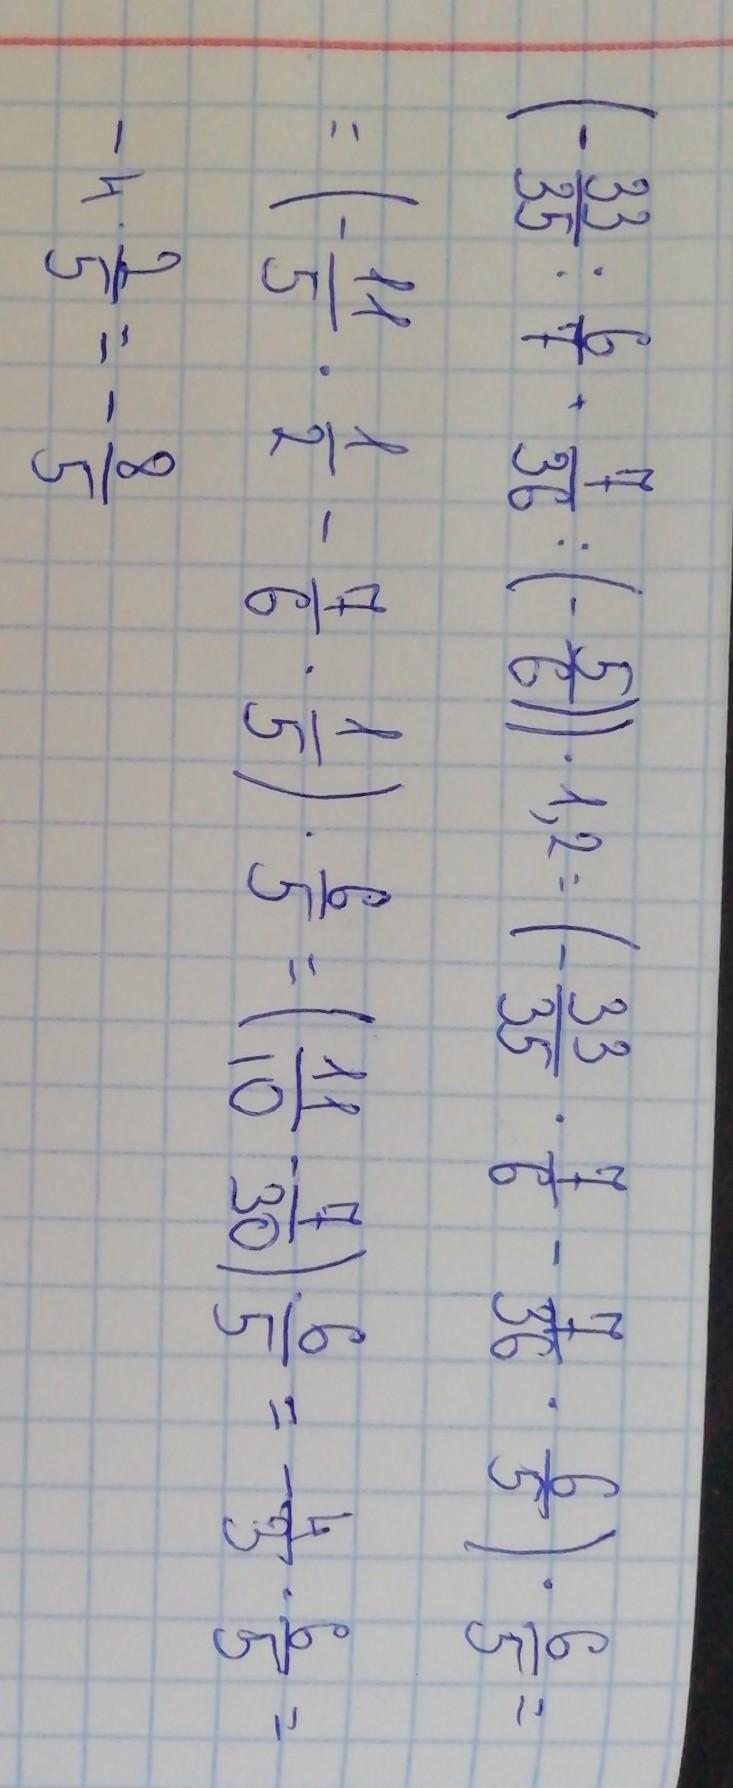 (-33/35 : 6/7 + 7/36 : (-5/6)) · 1,2 = (-33/35 · 7/6 - 7/36 · 6/5) · 6/5 =
= (-11/5 · 1/2 - 7/6 · 1/5) · 6/5 = (11/10 - 7/30) · 6/5 = -4/3 · 6/5 =
-4 · 2/5 = -8/5